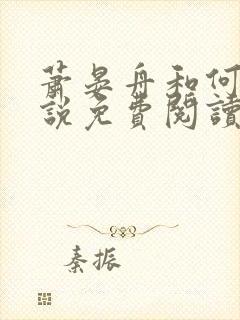 萧晏舟和何
說免費閱讀
秦振